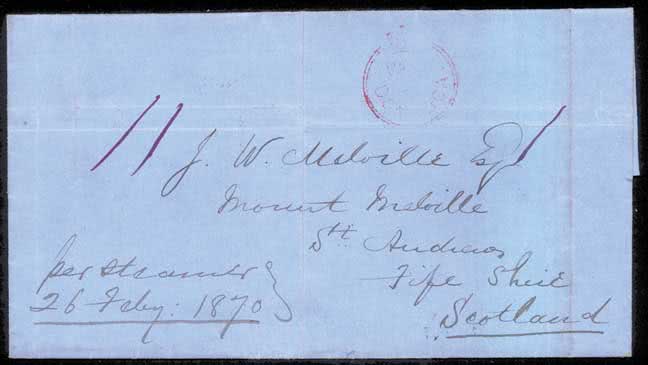 J. W. Melville Esq
Mount Melville
St. Andrews
Fife Shire
Scotland
per steamer
26 Feby: 1870